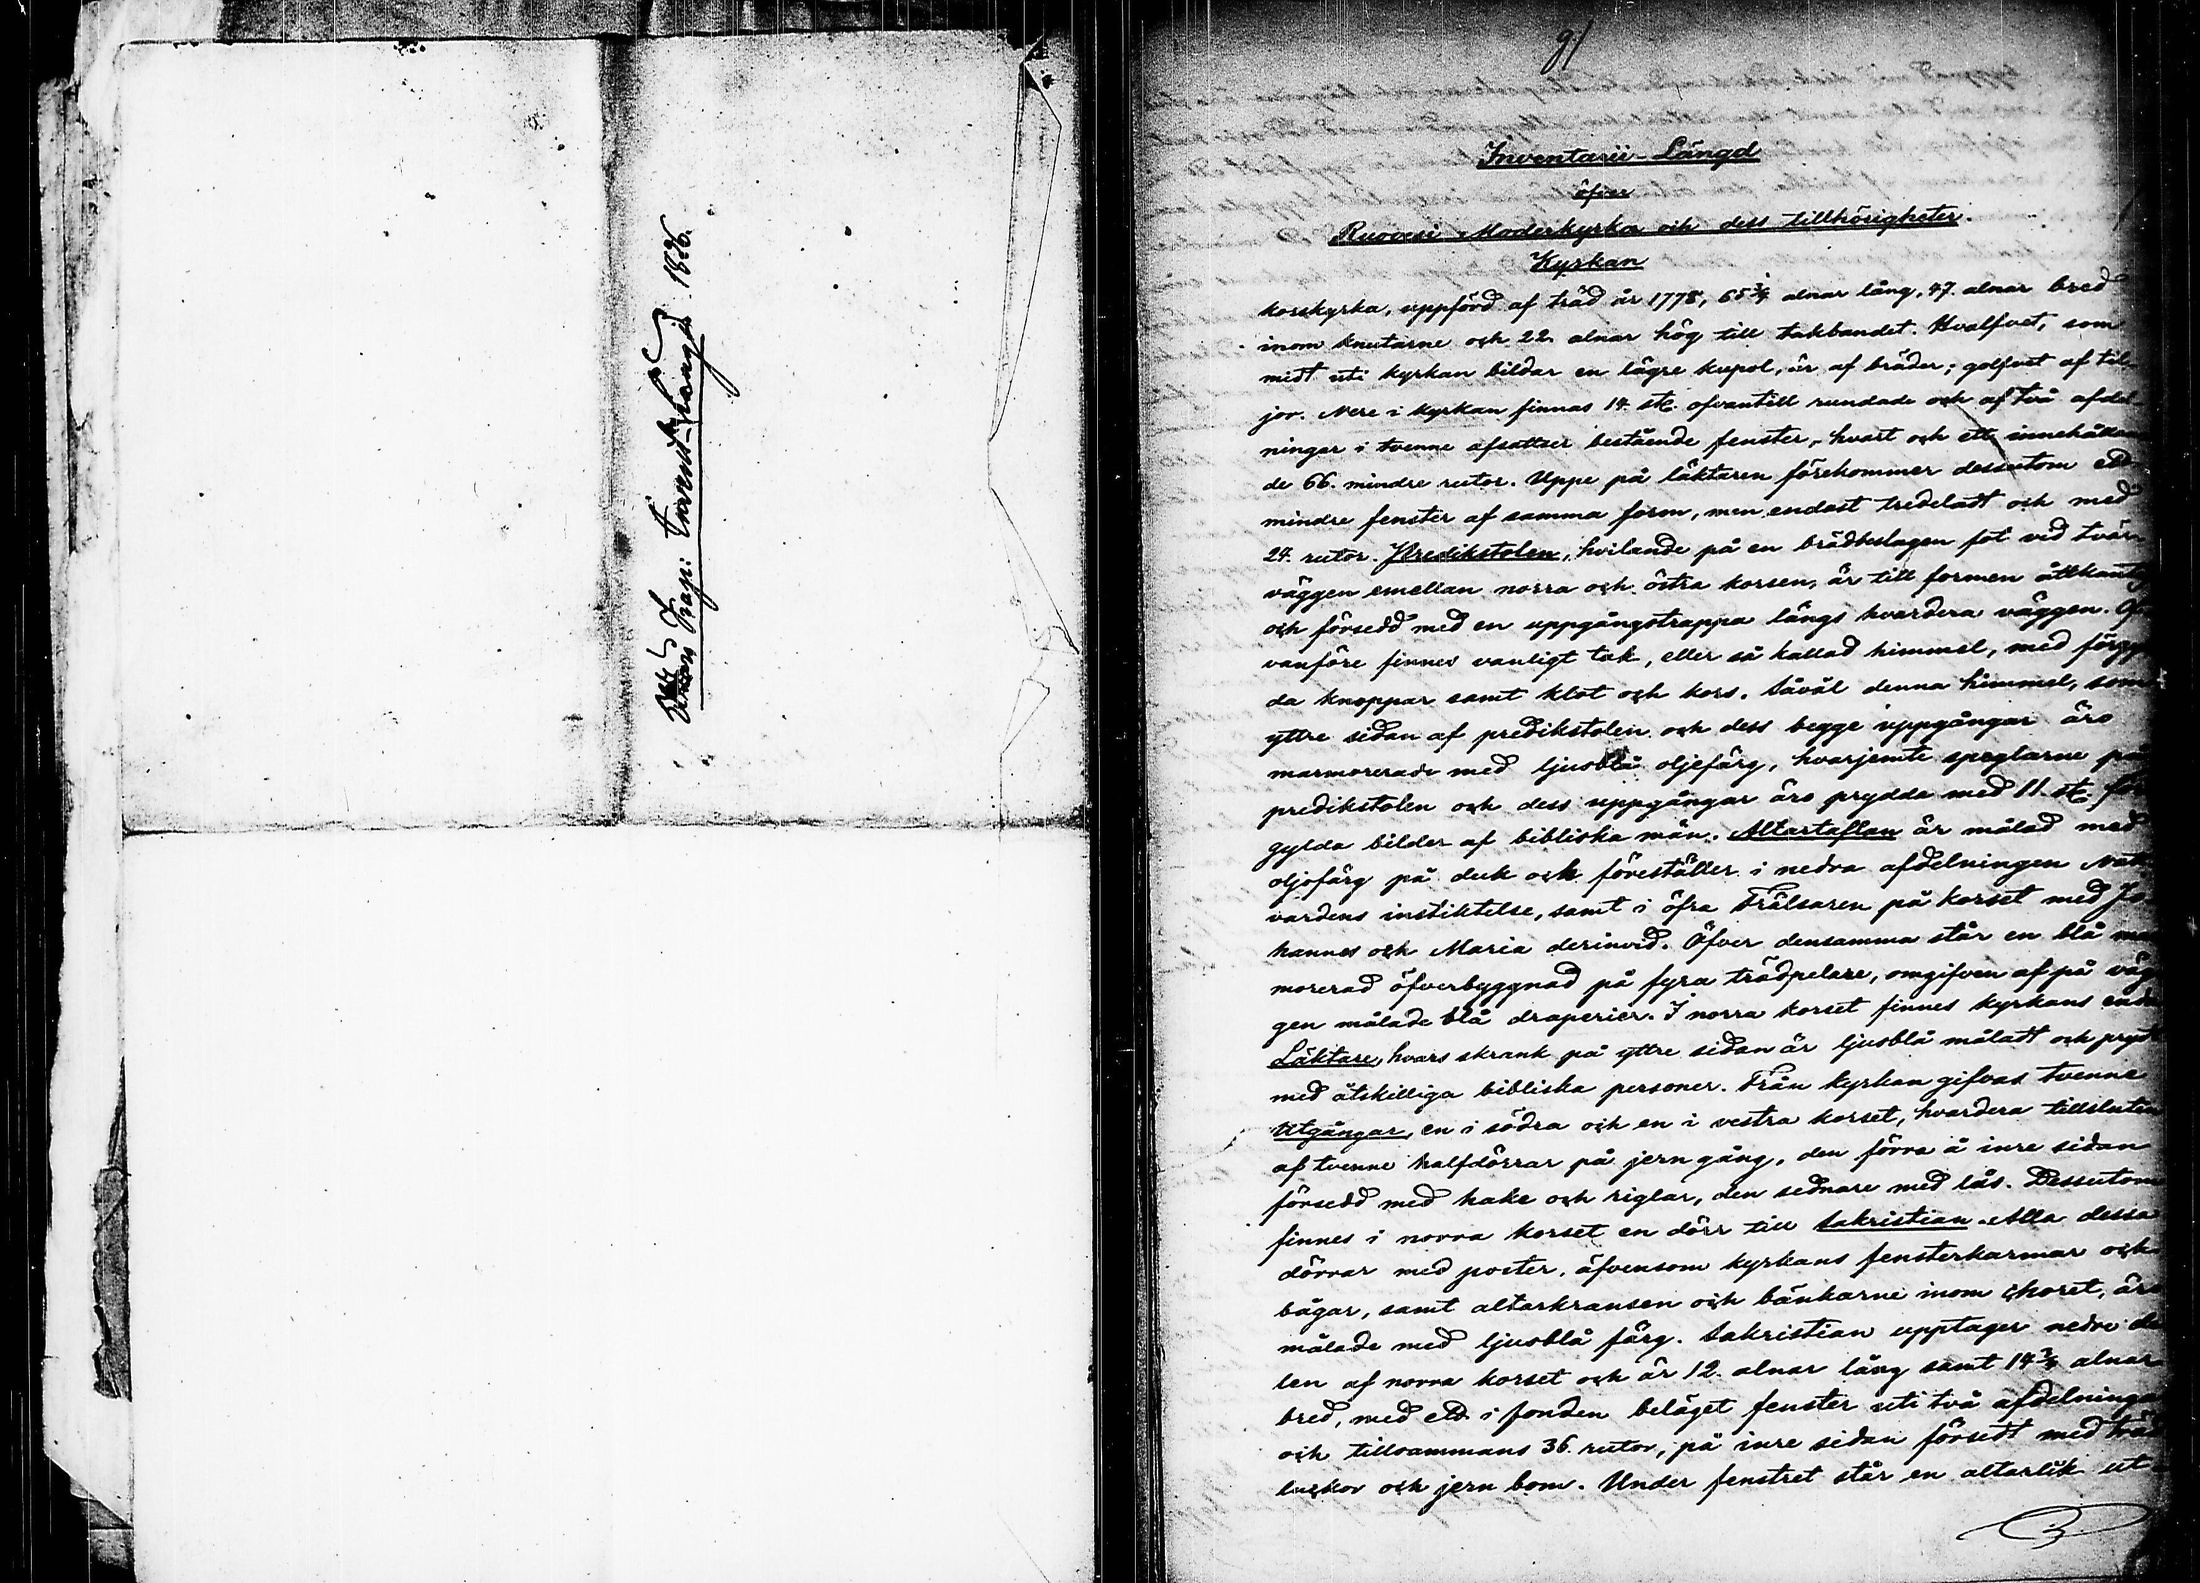 Kap: Invent. Längd 1826.
91
Inventarii-Längd
öfver
Ruovesi Moderkyrka och dess tillhörigheter.
Kyrkan
korskyrka, uppförd af träd år 1778, 65¾ alnar lång, 47. alnar bred
inom knutarne och 22 alnar hög till takbandet. Hvalfvet, som
midt uti kyrkan bildar en lägre kupol, är af bräder; golfvet af til-
jor. Nere i kyrkan finnas 14. st. ofvantill rundade och af två afdel-
ningar i tvenne afsattser bestående fenster, hvart och ett innehållan
de 66. mindre rutor. Uppe på läktaren förekommer dessutom ett
mindre fenster af samma form, men endast tredeladt och med
24. rutor. Predikstolen, hvilande på en brädbeslagen fot vid tvär
väggen emellan norra och östra korsen, är till formen åttkantig
och försedd med en uppgångstrappa längs hvardera väggen. Of
vanföre finnes vanligt tak, eller så kallad himmel, med förgyl
da knoppar samt klot och kors. Såväl denna himmel, som
yttre sidan af predikstolen och dess begge uppgångar äro
marmorerade med ljusblå oljefärg, hvarjemte speglarne på
predikstolen och dess uppgångar äro prydda med 11. st. för
gylda bilder af bibliska män. Altartaflan är målad med
oljofärg på duk och föreställer i nedra afdelningen Natt
vardens instiktelse, samt i öfra Frälsaren på korset med Jo
hannes och Maria derinvid. Öfver densamma står en blå mar
morerad öfverbyggnad på fyra trädpelare, omgifven af på väg
gen målade blå draperier. I norra korset finnes kyrkans enda
Läktare, hvars skrank på yttre sidan är ljusblå måladt och prydt
med åtskilliga bibliska personer. Från kyrkan gifvas tvenne
Utgångar, en i södra och en i vestra korset, hvardera tillsluten
af tvenne halfdörrar på jern gång, den förra å inre sidan
försedd med hake och riglar, den sednare med lås. Dessutom
finnes i norra korset en dörr till Sakristian. Alla dessa
dörrar med poster, äfvensom kyrkans fensterkarmar och
bågar, samt altarkransen och bänkarne inom choret, äro
målade med ljusblå färg. Sakristian upptager nedre de
len af norra korset och är 12. alnar lång samt 14¾ alnar
bred, med ett i fonden beläget fenster uti två afdelningar
och tillsammans 36. rutor, på inre sidan försedt med träd
luckor och jern bom. Under fenstret står en altarlik ut-